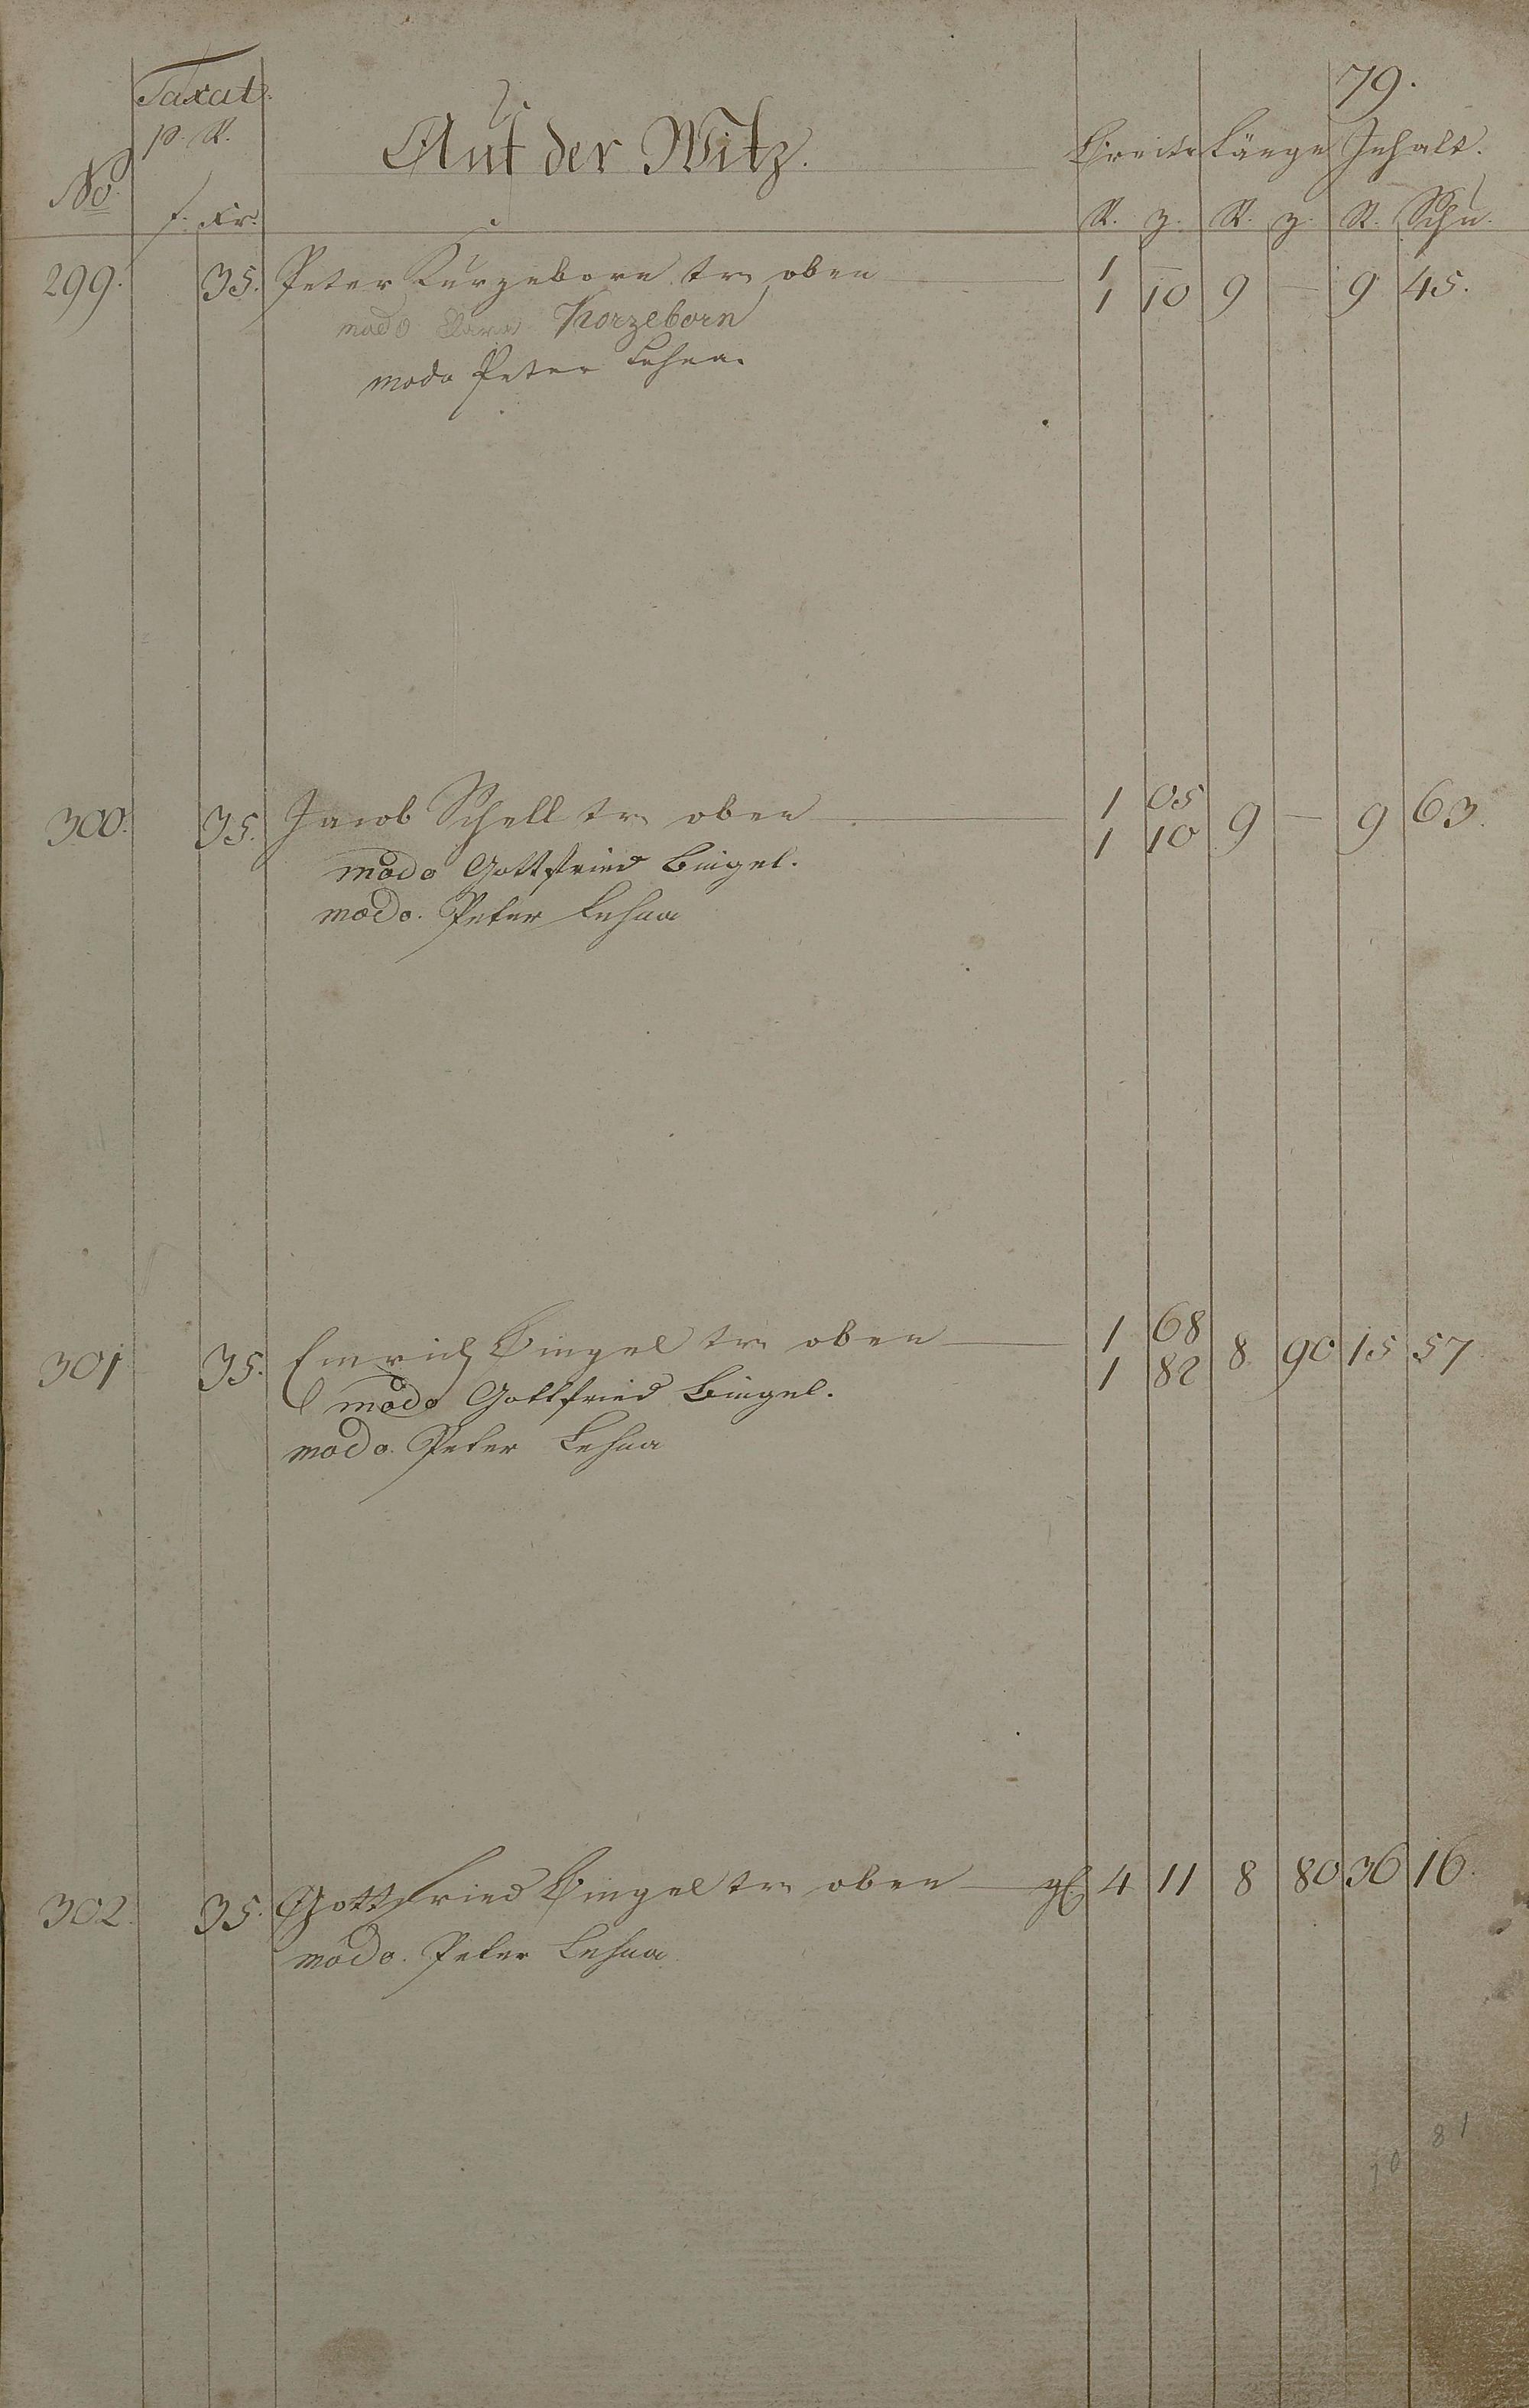 79.
Taxat.
p. R.
No.
f. Xr.
Auf der Witz.
Breite Länge Inhalt.
R. z. R. z. R. Schu.
299. 35. Peter Kurzeborn tr. oben 1 — 9 — 9 45.
1 10
modo Korzeborn
modo Peter Lehna.
300. 35. Jacob Schell tr. oben 1 05 9 — 9 63.
1 10
modo Gottfried Bingel.
modo. Peter Lehna
301 35. Emrich Bingel tr. oben 1 68 8 90 15 57
1 82
modo Gottfried Bingel.
modo. Peter Lehna
302. 35. Gottfried Bingel tr. oben gl. 4 11 8 80 36 16.
modo. Peter Lehna
70 81